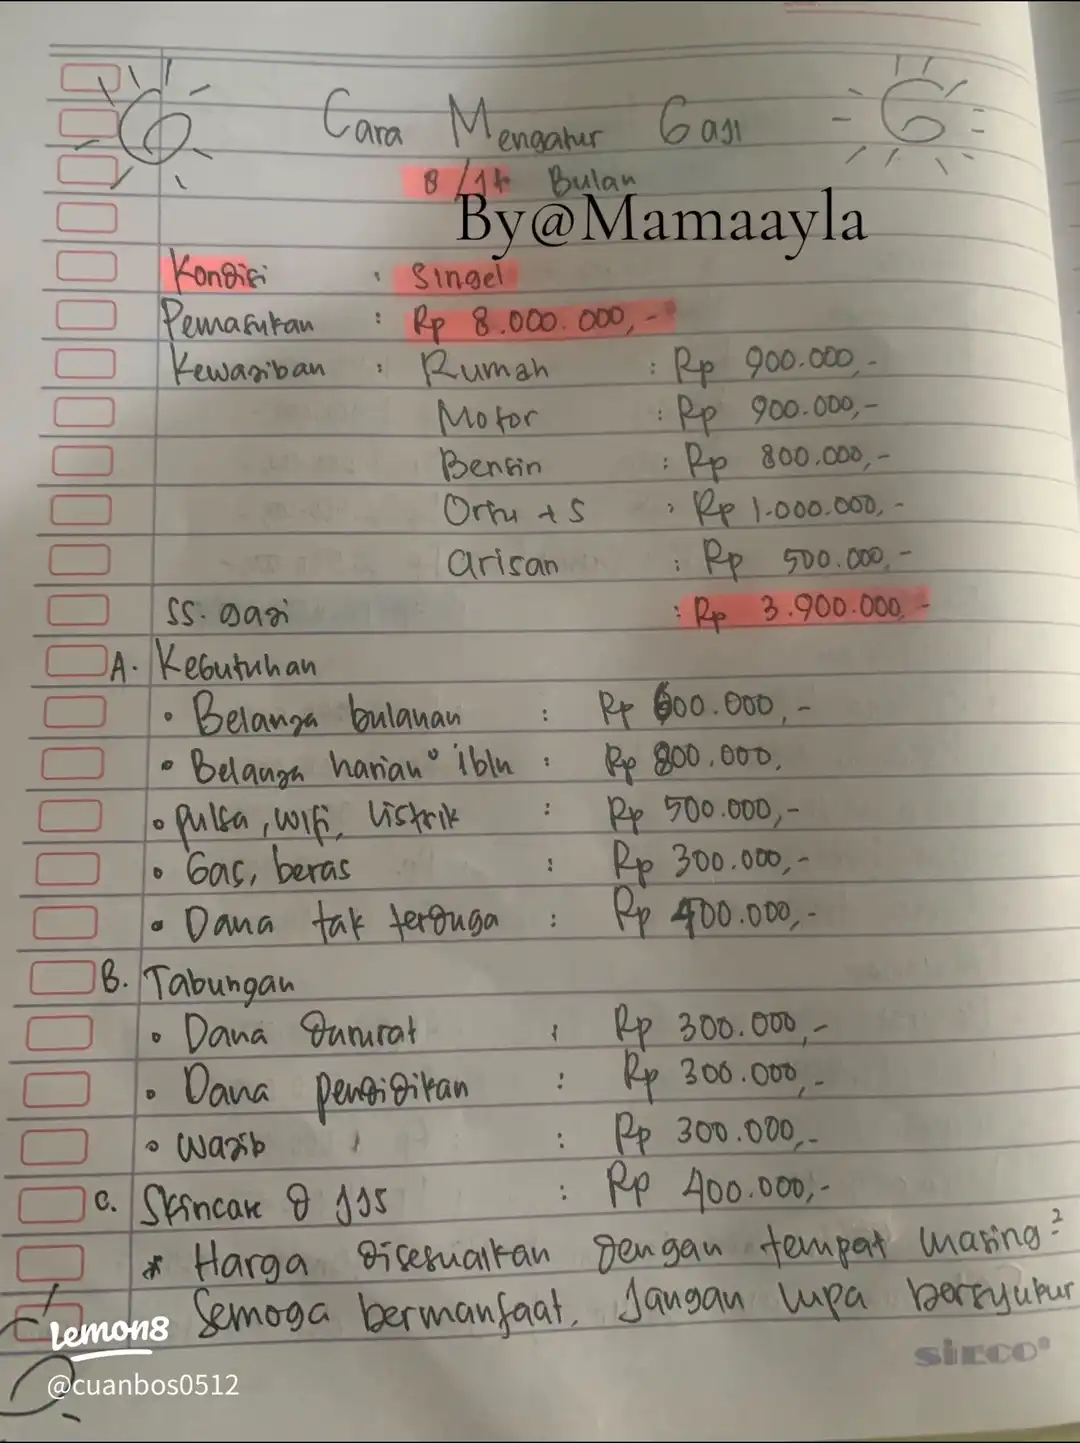 Cara Mengatur Gaji
8 /1k Bulan
By@Mamaayla
Kondisi : Singel
Pemasukan : Rp 8.000.000,-
Kewajiban : Rumah : Rp 900.000,-
Motor : Rp 900.000,-
Bensin : Rp 800.000,-
Ortu + S : Rp 1.000.000,-
arisan : Rp 500.000,-
SS. gaji : Rp 3.900.000,-
A. Kebutuhan
• Belanja bulanan : Rp 600.000,-
• Belanja harian° 1bln : Rp 800.000,
• pulsa, wifi, listrik : Rp 500.000,-
• Gas, beras : Rp 300.000,-
• Dana tak terduga : Rp 400.000,-
B. Tabungan
• Dana darurat : Rp 300.000,-
• Dana pendidikan : Rp 300.000,-
• wajib : Rp 300.000,-
C. Skincare & JJS : Rp 400.000,-
* Harga disesuaikan dengan tempat masing²
Semoga bermanfaat, Jangan lupa bersyukur
sirco
lemon8
@cuanbos0512